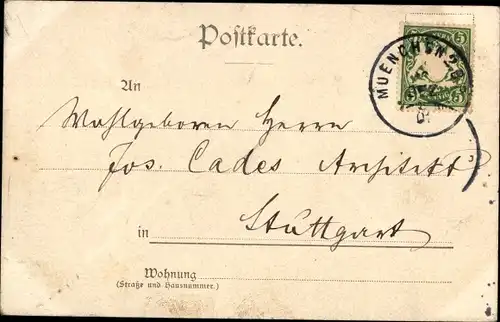 Postkarte.
MUENCHEN 2 B.
5 5
5 5
An
Wohlgeboren Herrn
Jos. Cades Architekt
in Stuttgart
Wohnung
(Straße und Hausnummer.)